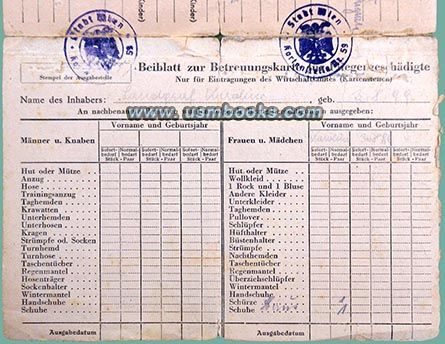 Stadt Wien
59
Stadt Wien
Kartenstelle Nr. 59
Stempel der Ausgabestelle
Beiblatt zur Betreuungskarte
Nur für Eintragungen des Wirtschaftsamtes (Kartenstellen)
Name des Inhabers: geb.
An nachbenannte ausgegeben:
www.usmbooks.com
Männer u. Knaben
Vorname und Geburtsjahr
Sofort-bedarf Normal-bedarf Sofort-bedarf Normal-bedarf Sofort-bedarf Normal-bedarf
Stück - Paar Stück - Paar Stück - Paar
Hut oder Mütze
Anzug
Hose
Trainingsanzug
Taghemden
Krawatten
Unterhemden
Unterhosen
Kragen
Strümpfe od. Socken
Turnhemd
Turnhose
Taschentücher
Regenmantel
Hosenträger
Sockenhalter
Wintermantel
Handschuhe
Schuhe
Ausgabedatum
Frauen u. Mädchen
Vorname und Geburtsjahr
Sofort-bedarf Normal-bedarf Sofort-bedarf Normal-bedarf Sofort-bedarf Normal-bedarf
Stück - Paar Stück - Paar Stück - Paar
Hut oder Mütze
Wollkleid
1 Rock und 1 Bluse
Andere Kleider
Unterkleider
Taghemden
Pullover
Schlüpfer
Hüfthalter
Büstenhalter
Strümpfe
Nachthemden
Taschentücher
Regenmantel
Überziehschlüpfer
Wintermantel
Handschuhe
Schürze
Schuhe
Ausgabedatum